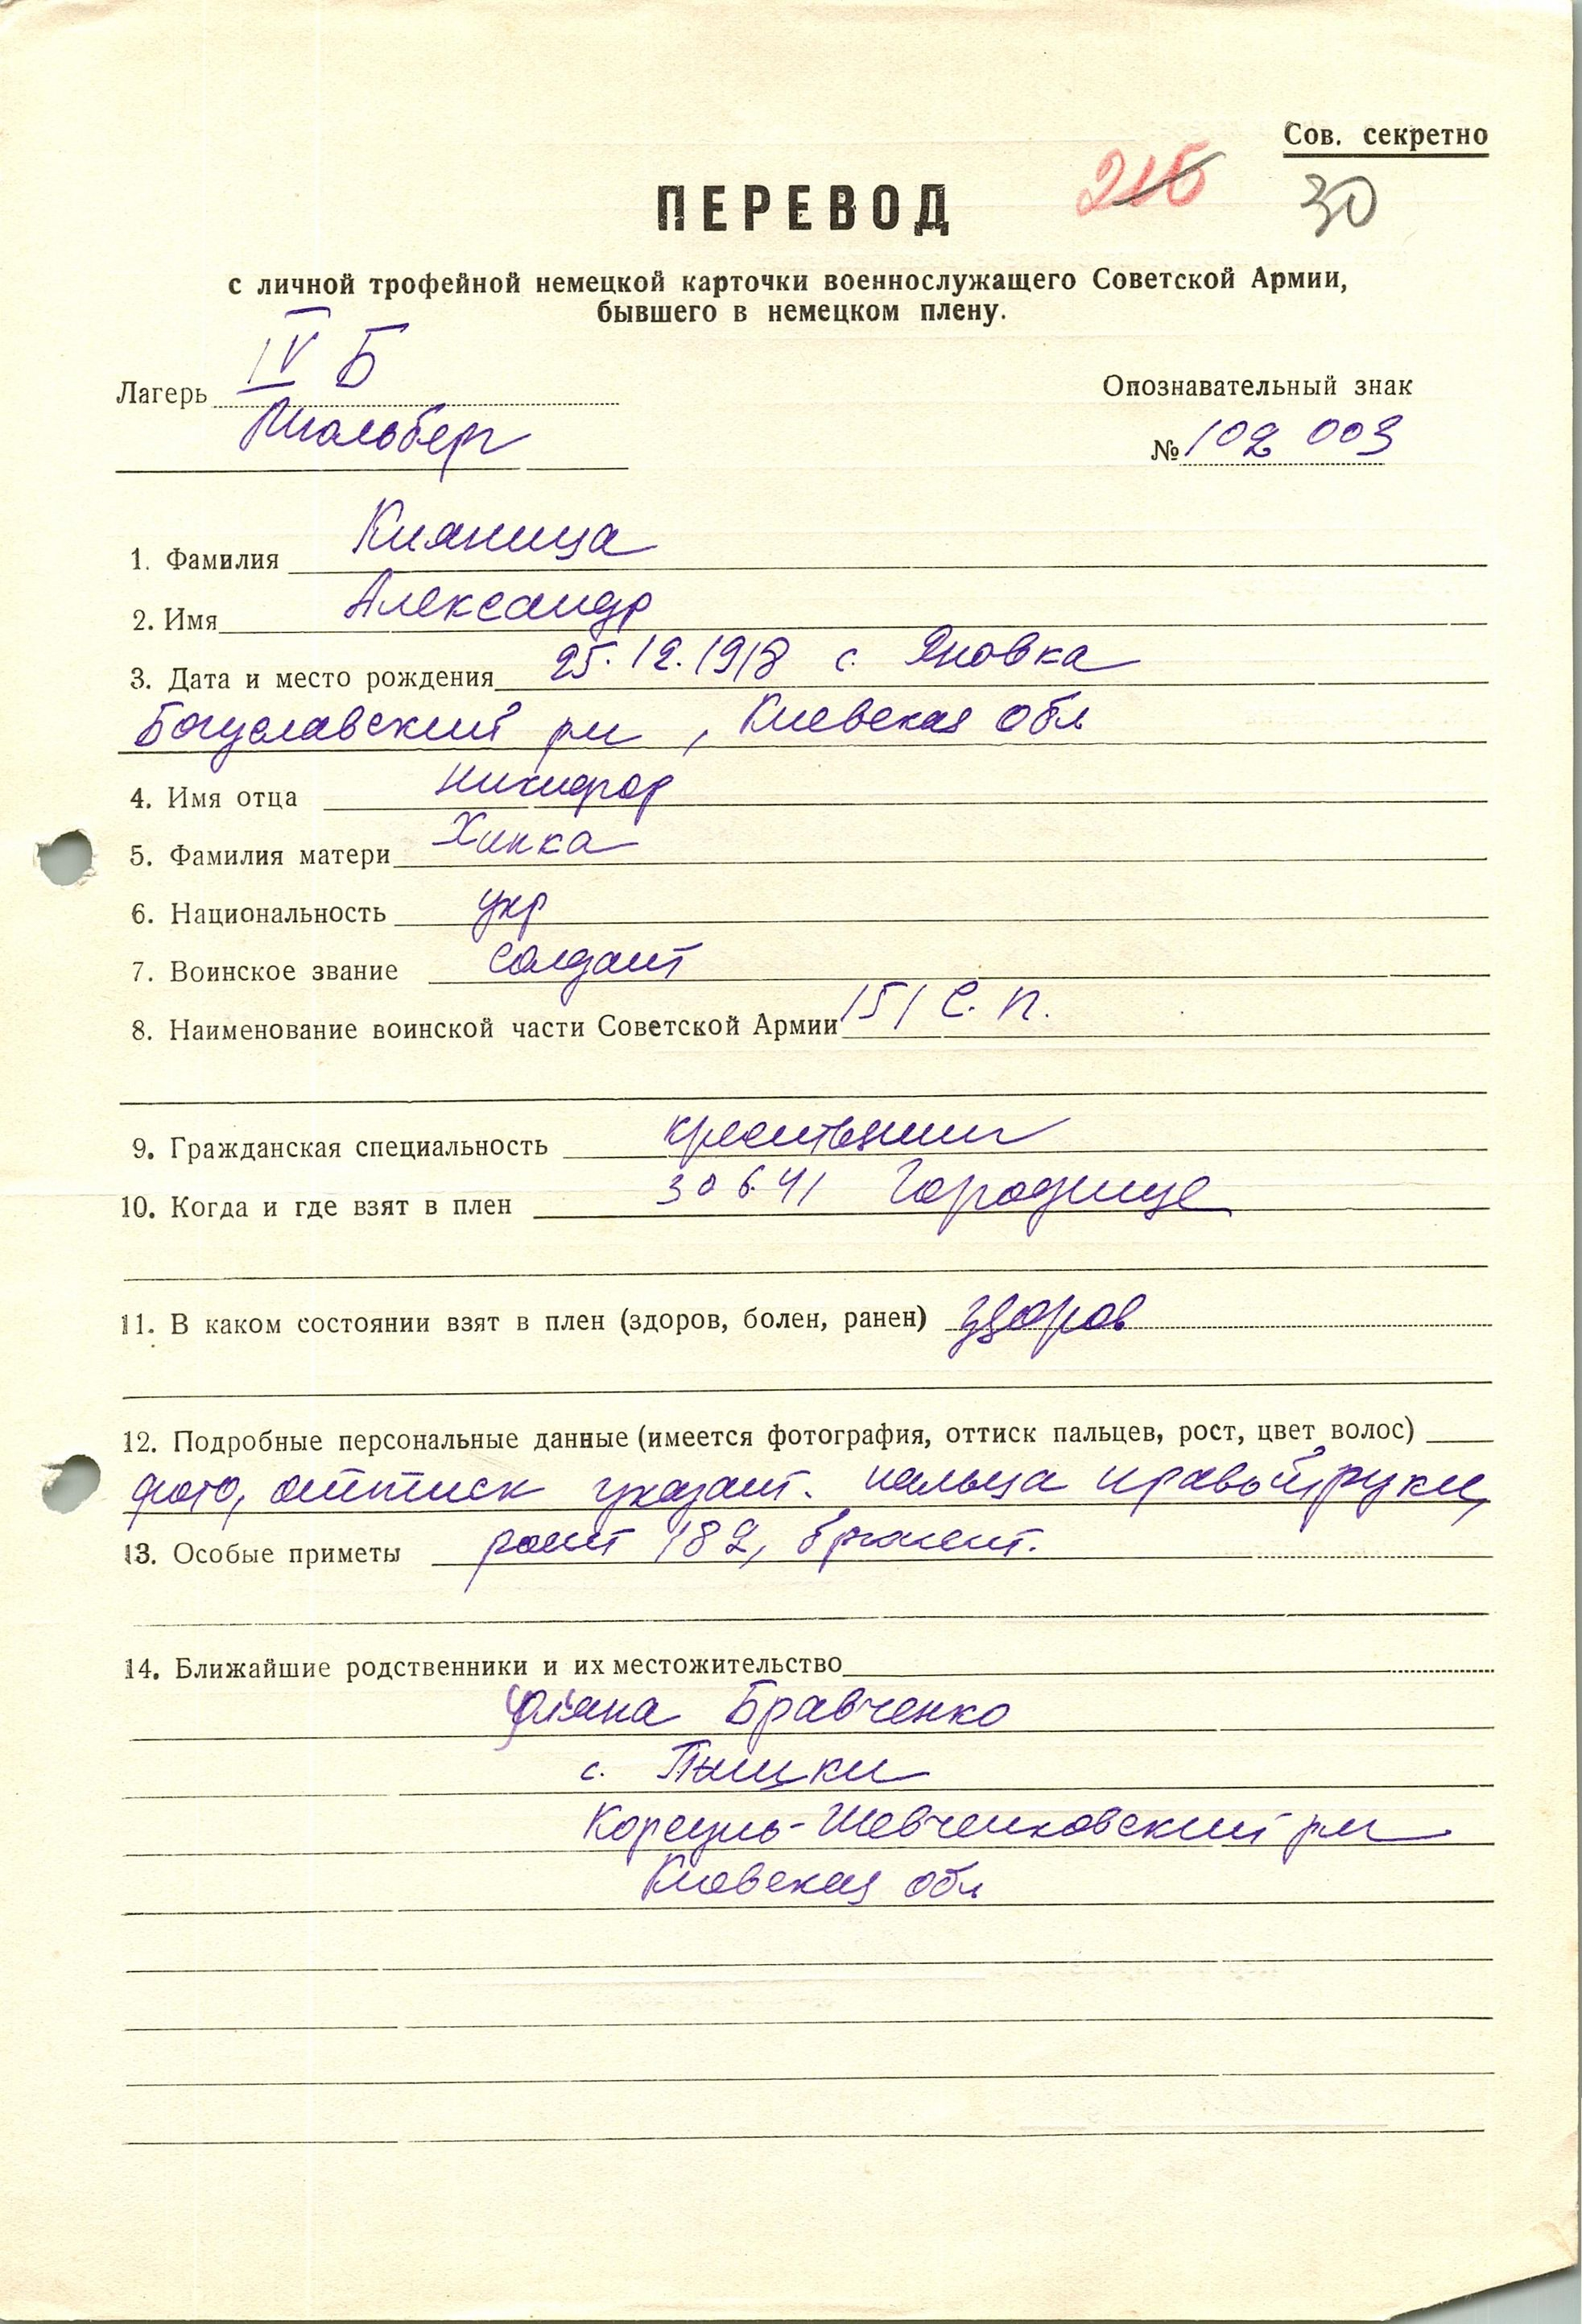 Сов. секретно
216 30
ПЕРЕВОД
с личной трофейной немецкой карточки военнослужащего Советской Армии,
бывшего в немецком плену.
Лагерь IV Б
Мюльберг
Опознавательный знак
№ 102 003
1. Фамилия Кияница
2. Имя Александр
3. Дата и место рождения 25.12.1918 с. Яновка
Богуславский рн, Киевская обл
4. Имя отца Никифор
5. Фамилия матери Химка
6. Национальность укр
7. Воинское звание солдат
8. Наименование воинской части Советской Армии 151 С. П.
9. Гражданская специальность крестьянин
10. Когда и где взят в плен 30 6.41 Городище
11. В каком состоянии взят в плен (здоров, болен, ранен) здоров
12. Подробные персональные данные (имеется фотография, оттиск пальцев, рост, цвет волос)
фото, оттиск указат. пальца правой руки,
13. Особые приметы рост 182, брюнет.
14. Ближайшие родственники и их местожительство
Уляна Бравченко
с.
Корсунь-Шевченковский рн
Киевская обл